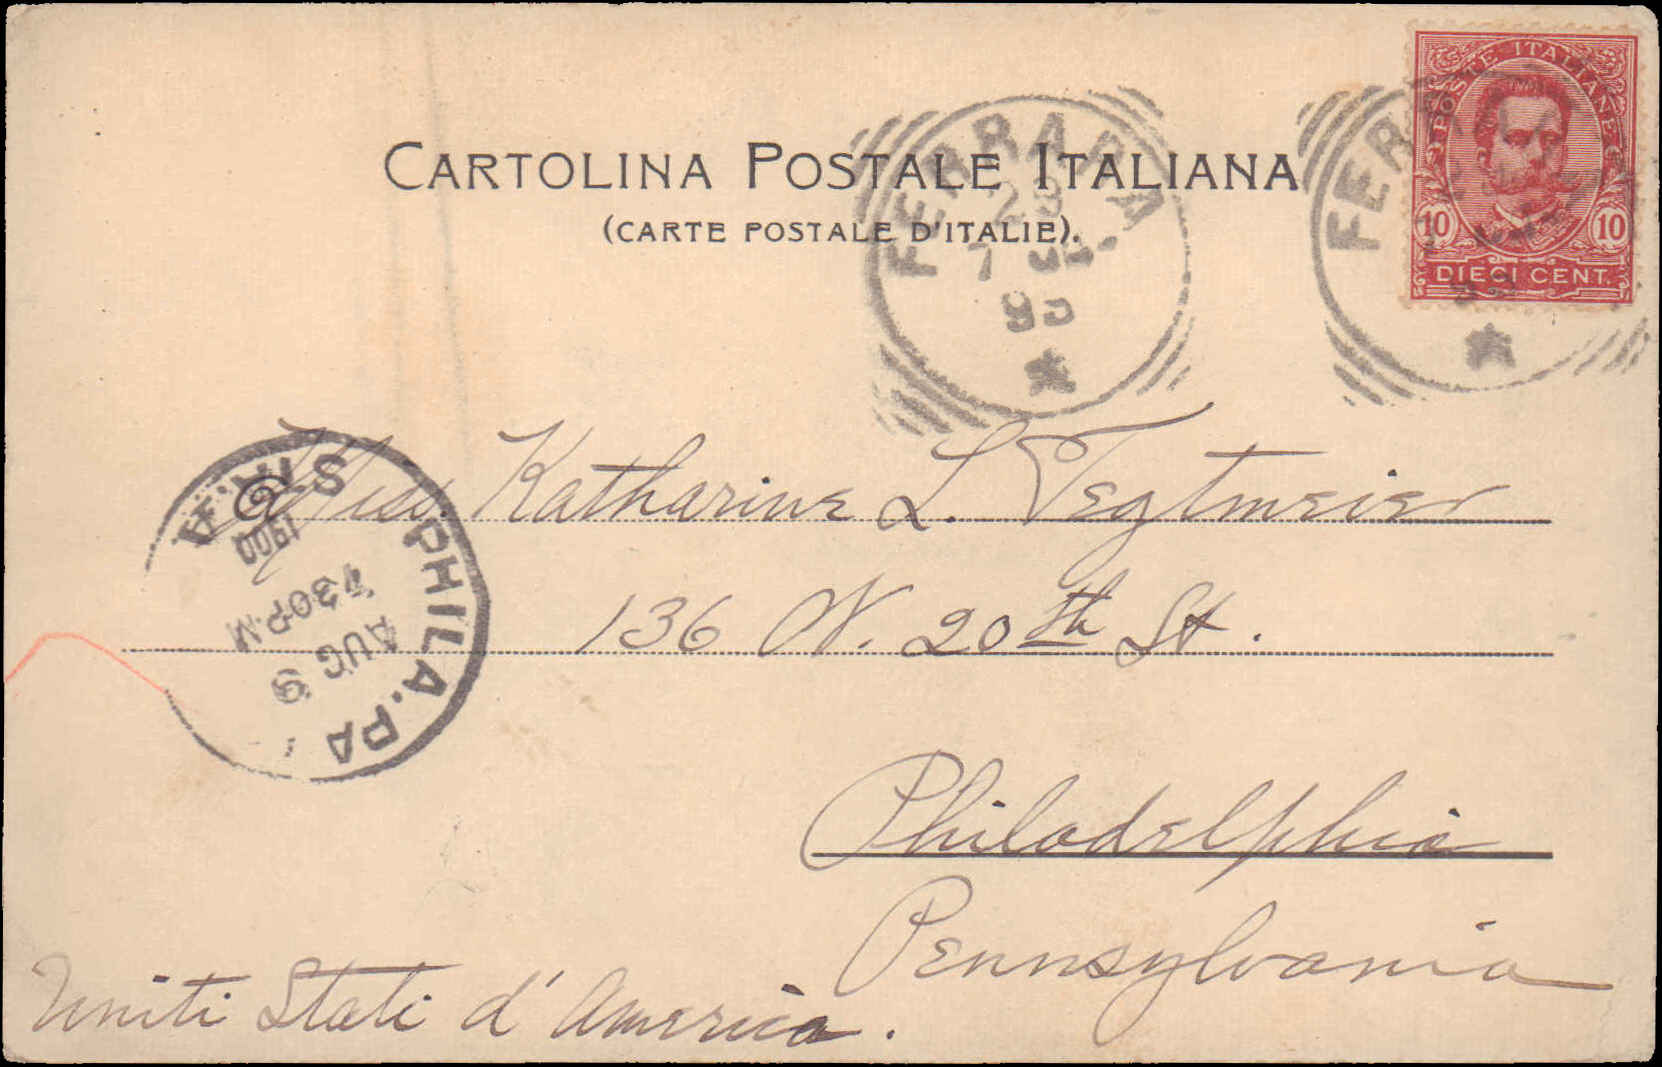 CARTOLINA POSTALE ITALIANA
(CARTE POSTALE D'ITALIE).
POSTE ITALIANE
10 10
DIECI CENT.
FERRARA
7
FER
Miss. Katharine L. Tegtmeier
136 N. 20th St.
Philadelphia
Pennsylvania
Uniti Stati d' America.
PHILA. PA
AUG 9
730 P.M
1900